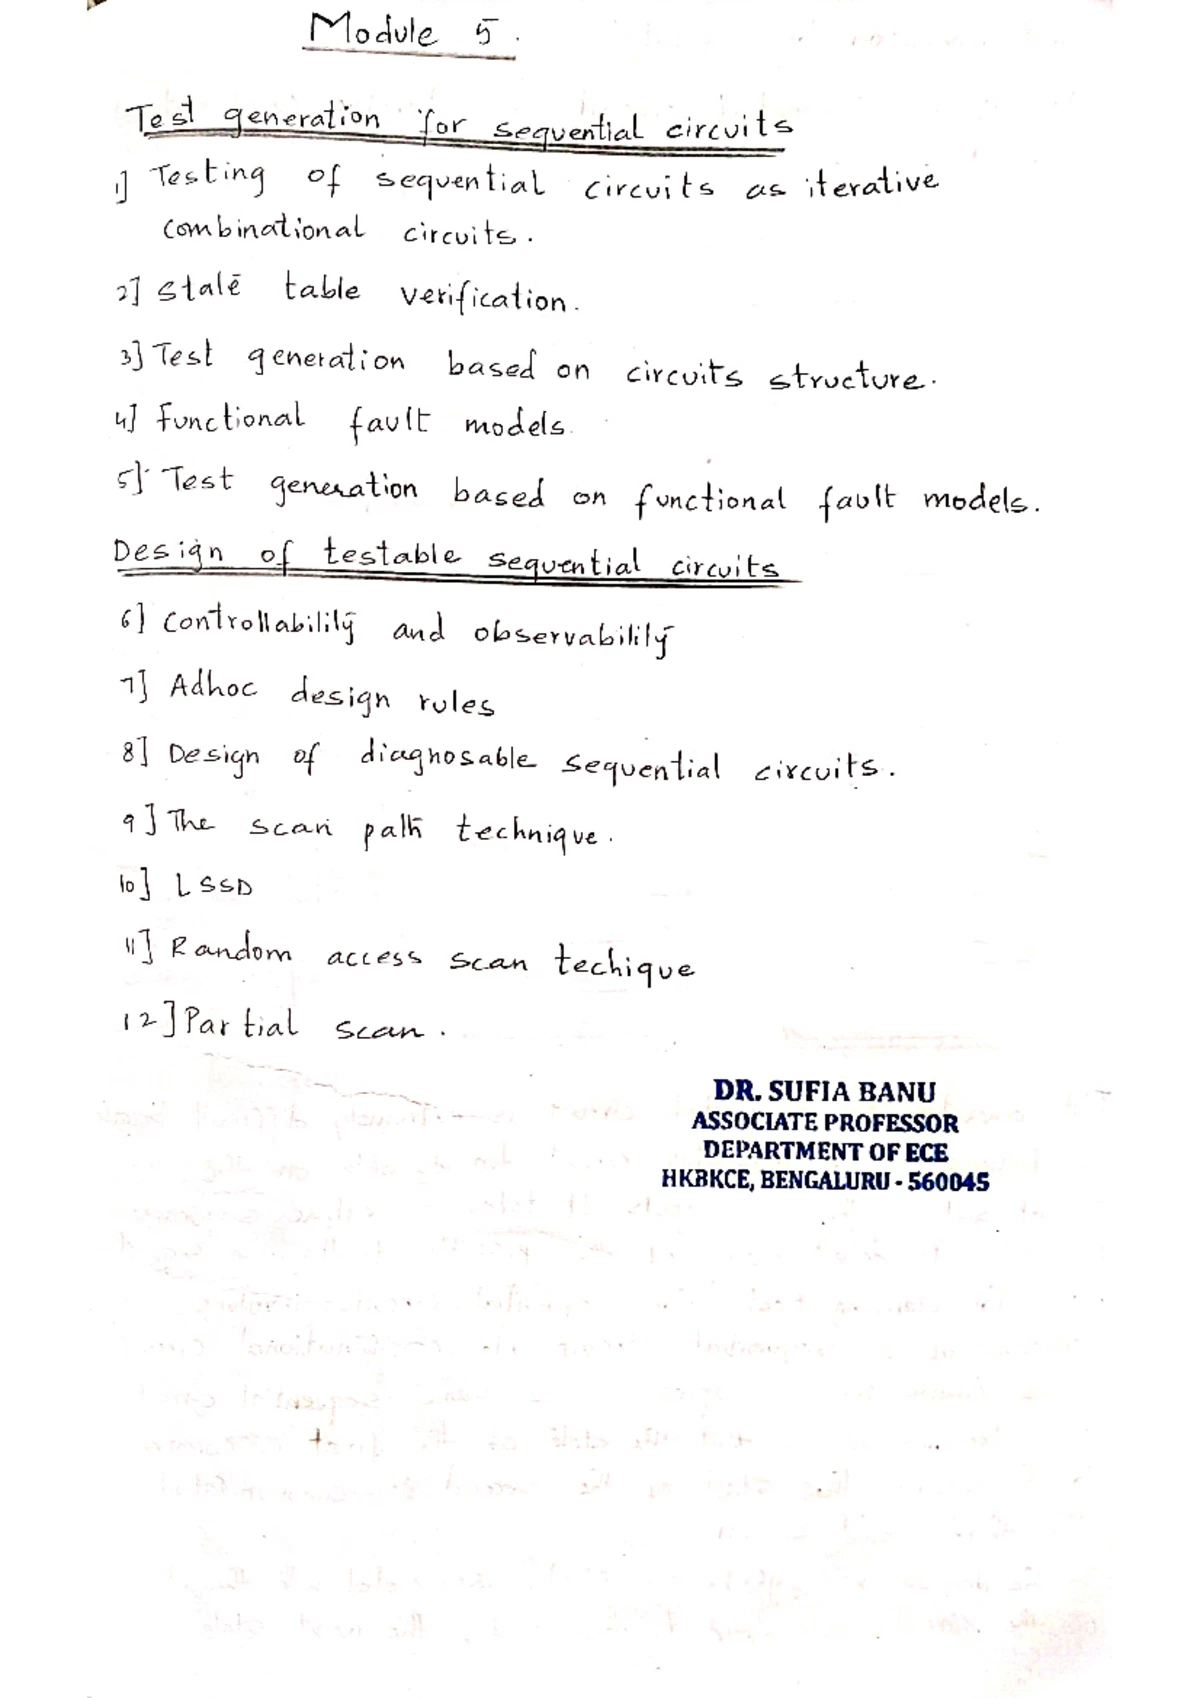 Module 5.
Test generation for sequential circuits
1] Testing of sequential circuits as iterative
combinational circuits.
2] State table verification.
3] Test generation based on circuits structure.
4] Functional fault models.
5] Test generation based on functional fault models.
Design of testable sequential circuits
6] Controllability and observability
7] Adhoc design rules
8] Design of diagnosable sequential circuits.
9] The scan path technique.
10] LSSD
11] Random access scan techique
12] Partial scan.
DR. SUFIA BANU
ASSOCIATE PROFESSOR
DEPARTMENT OF ECE
HKBKCE, BENGALURU - 560045